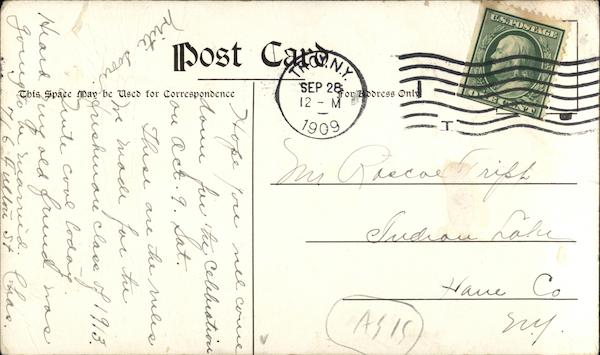 Post Card
This Space May be Used for Correspondence
For Address Only
TROY, N.Y.
SEP 28
12 - M
1909
U.S. POSTAGE
Hope you will come
down for the Celebration
on Oct. 9. Sat.
These are the rules
we made for the
Freshman class of 1913.
Quite cool today.
Heard my old friend was
going to be married. Chas.
716 Fulton St
Write soon
Mr Roscoe Tripp
Indian Lake
Ham Co
N.Y.